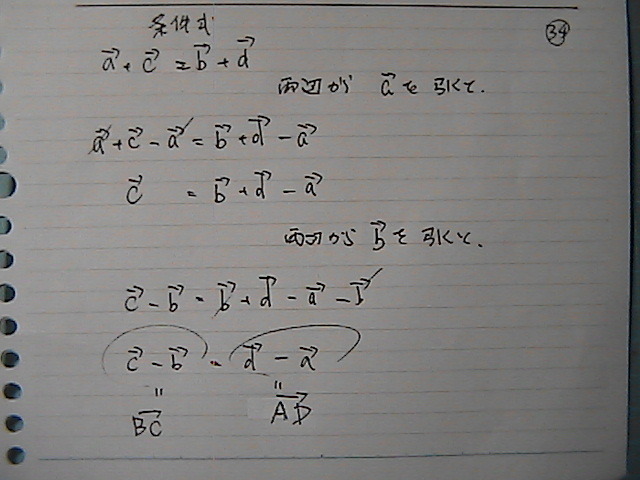 条件式
㉞
a⃗ + c⃗ = b⃗ + d⃗
両辺から a⃗ を引くと.
a⃗ + c⃗ - a⃗ = b⃗ + d⃗ - a⃗
c⃗ = b⃗ + d⃗ - a⃗
両辺から b⃗ を引くと.
c⃗ - b⃗ = b⃗ + d⃗ - a⃗ - b⃗
c⃗ - b⃗ = d⃗ - a⃗
〃 〃
BC⃗ AD⃗